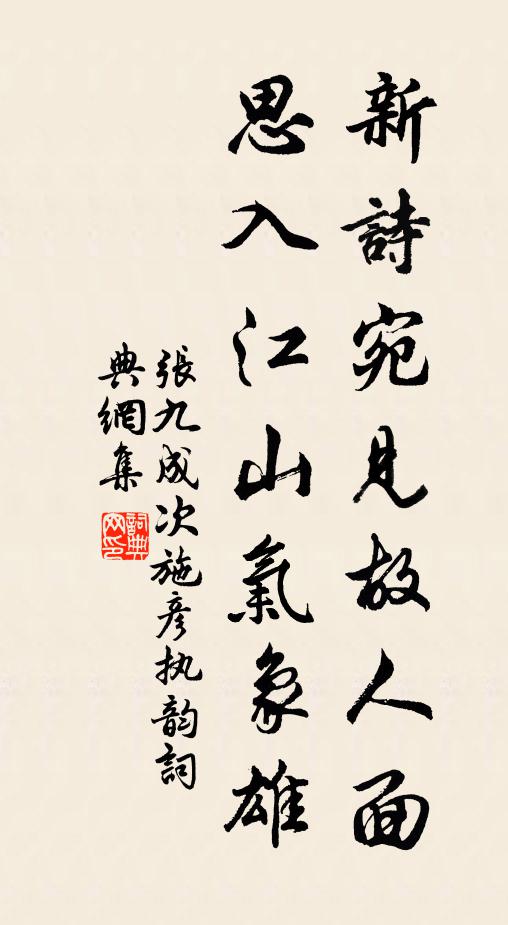 新詩宛見故人面
思入江山氣象雄
張九成次施彦执韵詞
典網集
詞典网印